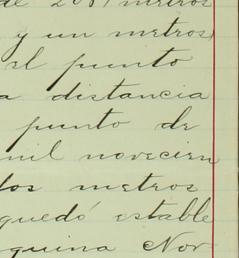 de 2081 metros
y un metros
el punto
a distancia
punto de
mil novecien
tos metros
quedó estable
quina Nor